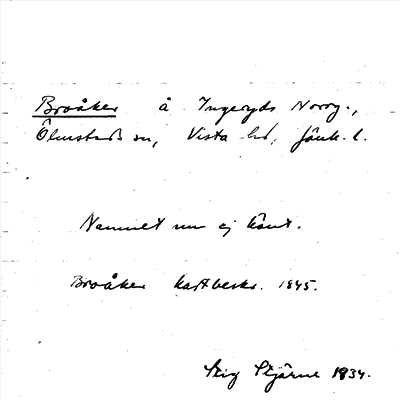 Broåker å Ingeryds Norrg.,
Ölmstads sn, Vista hd, Jönk. l.
Namnet nu ej känt.
Broåker kartbeskr. 1845.
Stig Stjärne 1934.